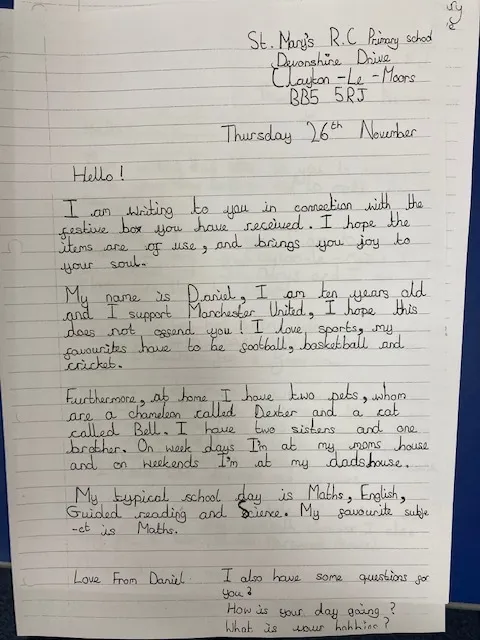 St. Mary's R.C Primary school
Devonshire Drive
Clayton-Le-Moors
BB5 5RJ
Thursday 26th November
Hello!
I am writing to you in connection with the
festive box you have received. I hope the
items are of use, and brings you joy to
your soul.
My name is Daniel, I am ten years old
and I support Manchester United, I hope this
does not offend you! I love sports, my
favourites have to be football, basketball and
cricket.
Furthermore, at home I have two pets, whom
are a chameleon called Dexter and a cat
called Bell. I have two sisters and one
brother. On week days I'm at my moms house
and on weekends I'm at my dads house.
My typical school day is Maths, English,
Guided reading and Science. My favourite subje
-ct is Maths.
Love From Daniel
I also have some questions for
you?
How is your day going?
What is your hobbies?